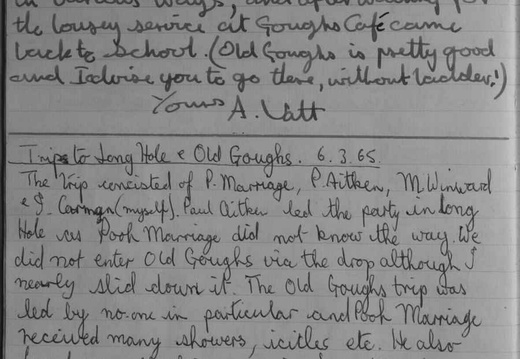 in various ways, and after waiting for
the lousey service at Goughs Café came
back to school. (Old Goughs is pretty good
and I advise you to go there, without ladder!)
Yours A. Vatt
Trips to Long Hole & Old Goughs. 6.3.65.
The trip consisted of P. Marriage, P. Aitken, M. Winward
& J. Carman (myself). Paul Aitken led the party in Long
Hole as Pooh Marriage did not know the way. We
did not enter Old Goughs via the drop although I
nearly slid down it. The Old Goughs trip was
led by no-one in particular and Pooh Marriage
received many showers, icicles etc. He also